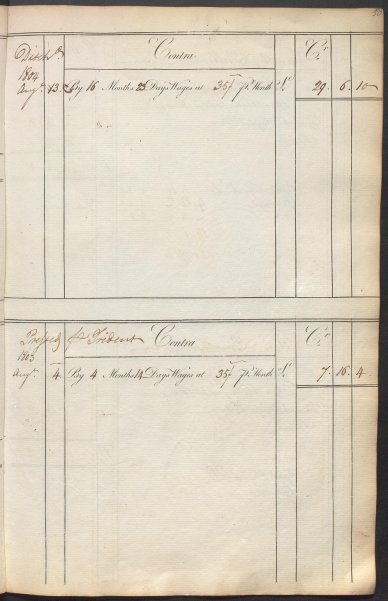 Disch.d Contra Cr
1804
Aug.t 13. By 16 Months 23 Days Wages at 35/ p. Month £ 29. 6. 10
Pressed p Trident Contra Cr
1803
Aug.t 4. By 4 Months 14 Days Wages at 35/ p. Month £ 7. 16. 4